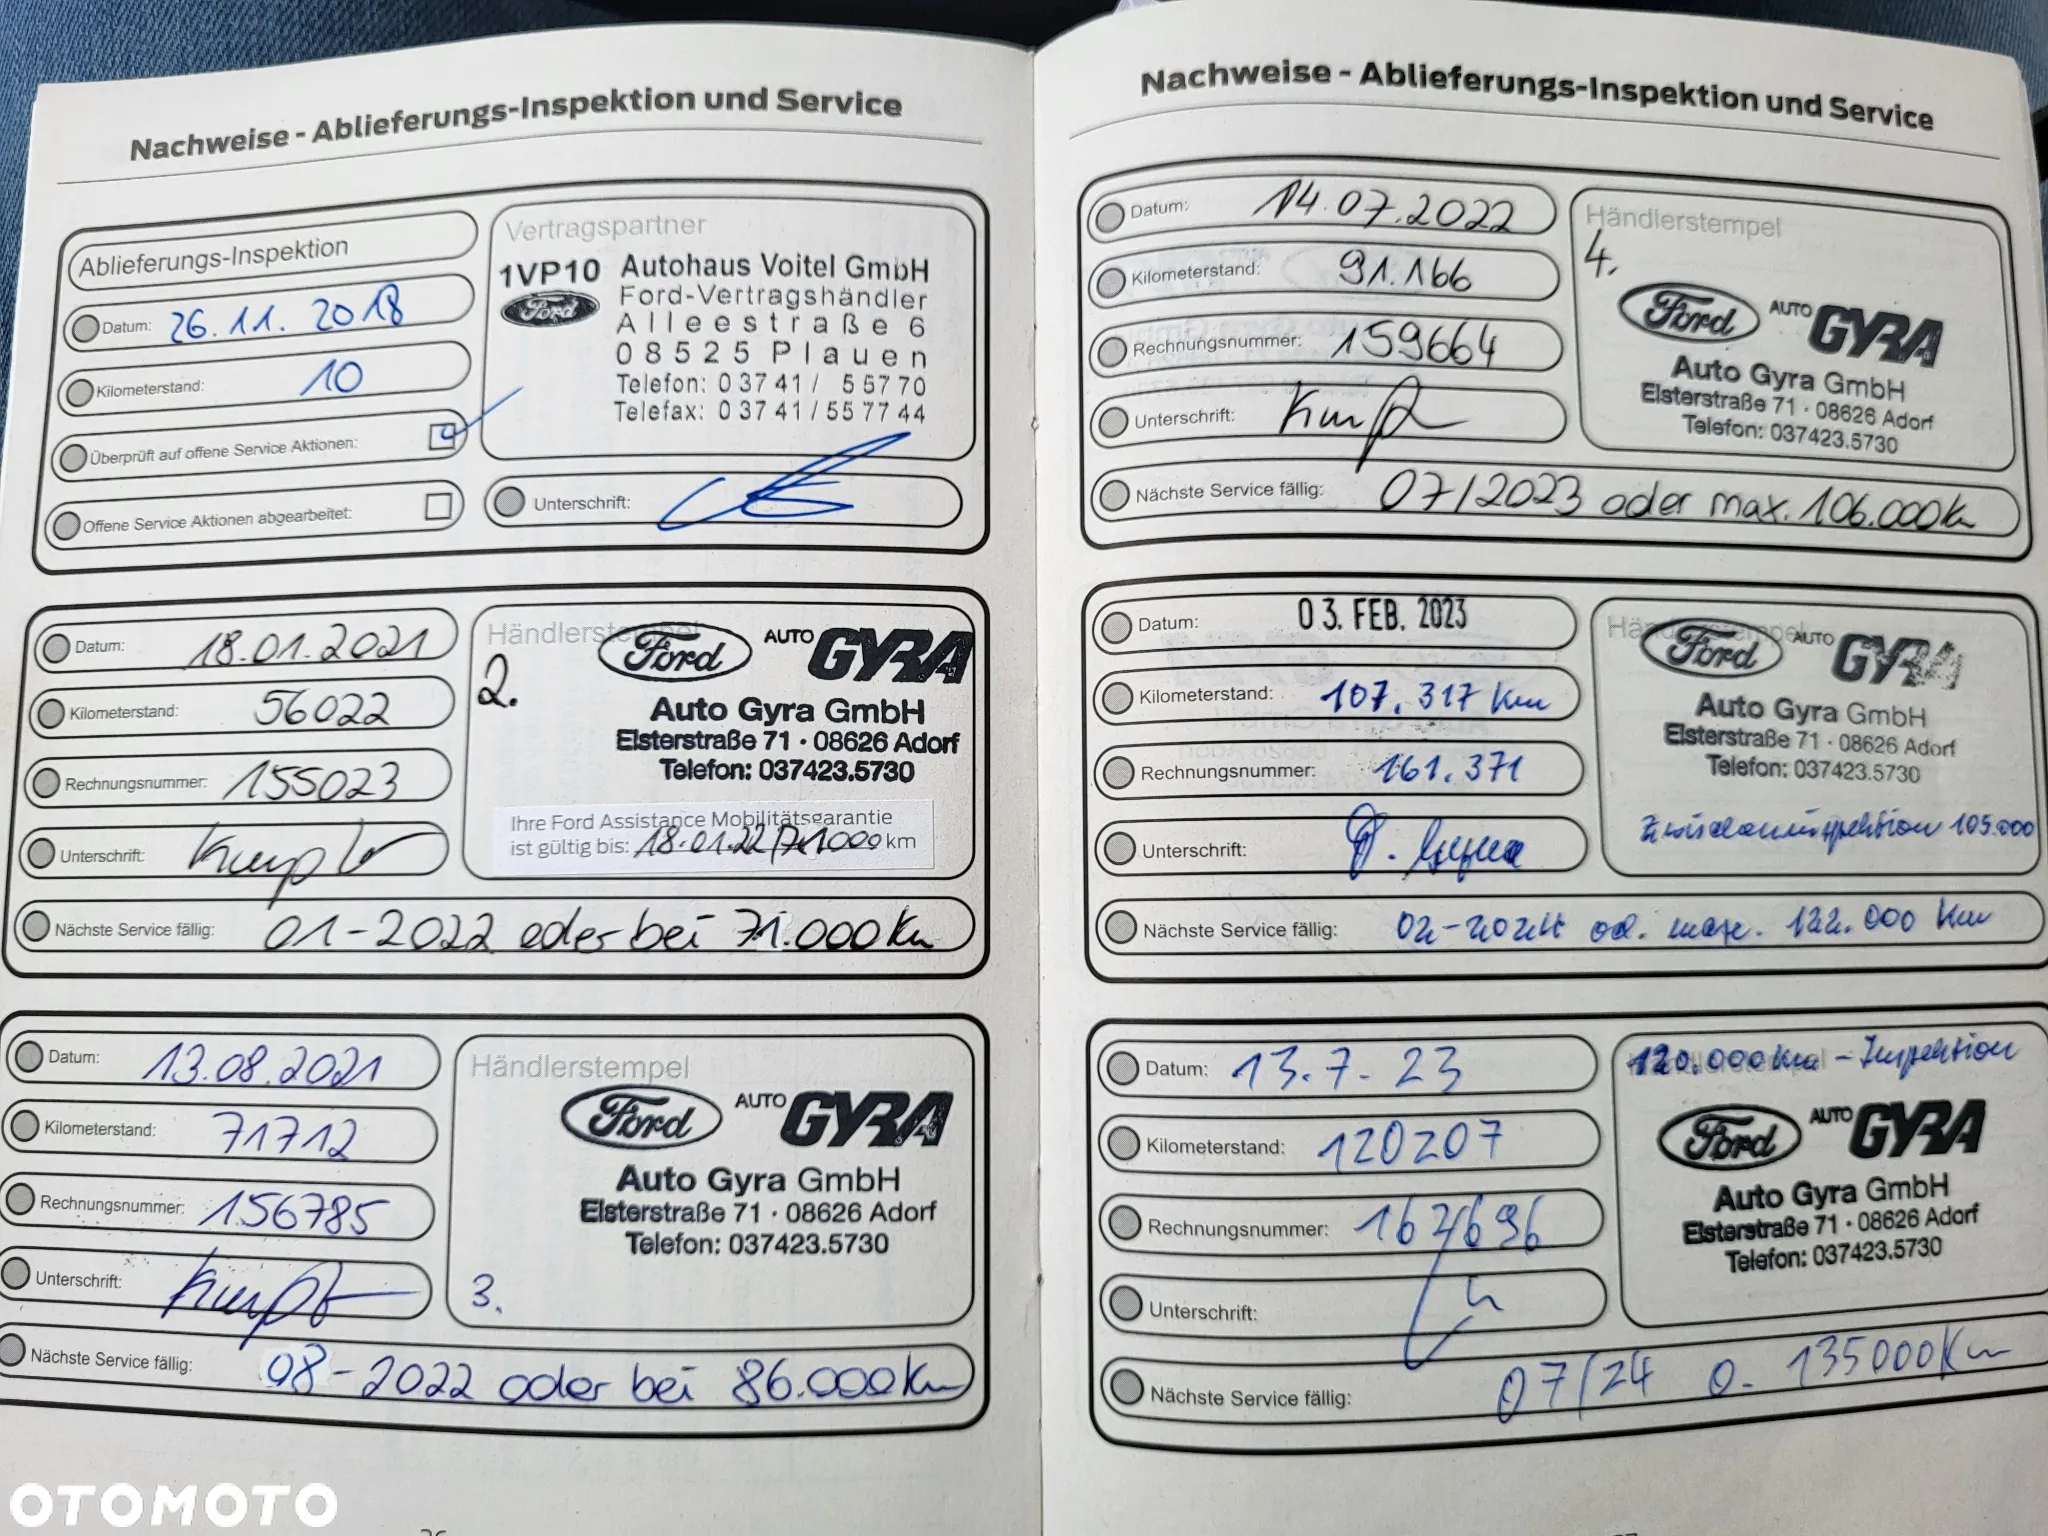 Nachweise - Ablieferungs-Inspektion und Service
Ablieferungs-Inspektion
Datum: 26.11.2018
Kilometerstand: 10
Überprüft auf offene Service Aktionen:
Offene Service Aktionen abgearbeitet:
Vertragspartner
1VP10 Autohaus Voitel GmbH
Ford Ford-Vertragshändler
Alleestraße 6
08525 Plauen
Telefon: 03741/ 55770
Telefax: 03741/557744
Unterschrift:
Datum: 18.01.2021
Kilometerstand: 56022
Rechnungsnummer: 155023
Unterschrift:
Händlerstempel
2.
Ford AUTO GYRA
Auto Gyra GmbH
Elsterstraße 71 · 08626 Adorf
Telefon: 037423.5730
Ihre Ford Assistance Mobilitätsgarantie
ist gültig bis: 18.01.22/71000 km
Nächste Service fällig: 01-2022 oder bei 71.000Km
Datum: 13.08.2021
Kilometerstand: 71712
Rechnungsnummer: 156785
Unterschrift:
Händlerstempel
Ford AUTO GYRA
Auto Gyra GmbH
Elsterstraße 71 · 08626 Adorf
Telefon: 037423.5730
3.
Nächste Service fällig: 08-2022 oder bei 86.000Km
Nachweise - Ablieferungs-Inspektion und Service
Datum: 14.07.2022
Kilometerstand: 91.166
Rechnungsnummer: 159664
Unterschrift:
Händlerstempel
4.
Ford AUTO GYRA
Auto Gyra GmbH
Elsterstraße 71 · 08626 Adorf
Telefon: 037423.5730
Nächste Service fällig: 07/2023 oder max. 106.000Km
Datum: 03. FEB. 2023
Kilometerstand: 107.317 Km
Rechnungsnummer: 161.371
Unterschrift:
Händlerstempel
Ford AUTO GYRA
Auto Gyra GmbH
Elsterstraße 71 · 08626 Adorf
Telefon: 037423.5730
Zwischeninspektion 105.000
Nächste Service fällig: 02-2024 od. max. 122.000 Km
Datum: 13.7.23
Kilometerstand: 120207
Rechnungsnummer:
Unterschrift:
120.000 Km - Inspektion
Ford AUTO GYRA
Auto Gyra GmbH
Elsterstraße 71 · 08626 Adorf
Telefon: 037423.5730
Nächste Service fällig: 07/24 o. 135000Km
OTOMOTO